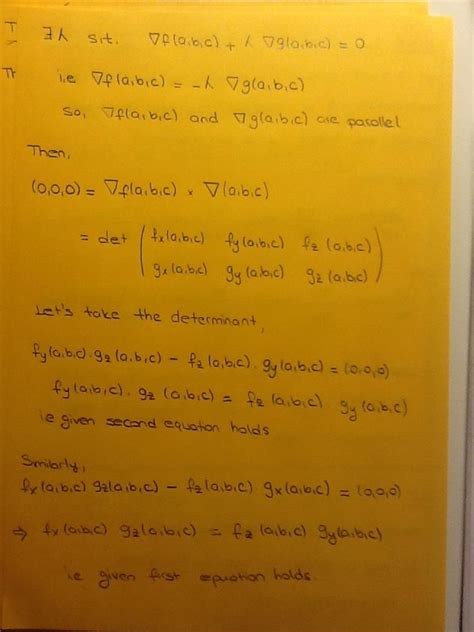 T
∃λ s.t. ∇f(a,b,c) + λ ∇g(a,b,c) = 0
Th
i.e ∇f(a,b,c) = -λ ∇g(a,b,c)
so, ∇f(a,b,c) and ∇g(a,b,c) are parallel
Then,
(0,0,0) = ∇f(a,b,c) × ∇(a,b,c)
= det ( fx(a,b,c) fy(a,b,c) fz(a,b,c)
gx(a,b,c) gy(a,b,c) gz(a,b,c) )
Let's take the determinant,
fy(a,b,c).gz(a,b,c) - fz(a,b,c).gy(a,b,c) = (0,0,0)
fy(a,b,c). gz(a,b,c) = fz(a,b,c) gy(a,b,c)
ie given second equation holds
Smilarly,
fx(a,b,c) gz(a,b,c) - fz(a,b,c) gx(a,b,c) = (0,0,0)
⇒ fx(a,b,c) gz(a,b,c) = fz(a,b,c) gy(a,b,c)
ie given first equation holds.